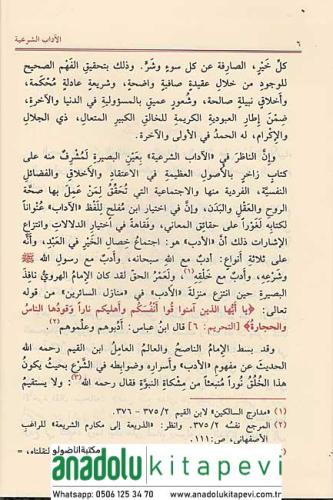 ٦ الآداب الشرعية
كلّ خَيْرٍ، الصارفة عن كل سوءٍ وشَرٍّ. وذلك بتحقيق الفَهْم الصحيح
للوجودِ من خلال عقيدةٍ صافيةٍ واضحةٍ، وشريعةٍ عادلةٍ مُحْكَمة،
وأخلاقٍ نبيلةٍ صالحة، وشعورٍ عميقٍ بالمسؤولية في الدنيا والآخرة،
ضِمْنَ إطارِ العبودية الكريمةِ للخالقِ الكبيرِ المتعال، ذي الجلال
والإكرام، له الحمدُ في الأولى والآخرة.
وإنَّ الناظرَ في «الآداب الشرعية» بعَيْنِ البصيرةِ لَمُشْرِفٌ منه على
كتابٍ زاخرٍ بالأصولِ العظيمةِ في الاعتقادِ والأخلاقِ والفضائلِ
النفسيَّة، الفردية منها والاجتماعية التي تُحَقِّقُ لمَنْ عَمِلَ بها صحَّةَ
الروحِ والعَقْلِ والبَدَن، وإنَّ في اختيار ابن مُفلحٍ لِلَفْظِ «الآداب» عُنْواناً
لكتابه لَغَوْراً على حقائقِ المعاني، وفَقَاهةً في اختيارِ الدلالاتِ وانتزاع
الإشارات ذلك أنَّ «الأدب» هو: اجتماعُ خِصالِ الخَيْرِ في العَبْدِ، وأنَّه
على ثلاثةِ أنواع: أدبٌ مع اللهِ سبحانه، وأدبٌ مع رسولِ اللهِ ﷺ
وشَرْعِه، وأدبٌ مع خَلْقِه(١)، ولَعَمْرُ الحقِّ لقد كان الإمامُ الهرويُّ نافِذَ
البصيرةِ حين انتزع منزلةَ «الأدب» في «منازل السائرين» من قوله
تعالى: ﴿يا أيُّها الذين آمنوا قُوا أَنْفُسَكُم وأَهليكم ناراً وَقودُها الناسُ
والحجارة﴾ [التحريم: ٦] قال ابنُ عباس: أدِّبوهم وعلِّموهم(٢).
وقد بسط الإمامُ الناصحُ والعالمُ العاملُ ابن القيم رحمه الله
الحديثَ عن مفهومِ «الأدب» وأسراره وضوابطِه في الشَّرْعِ بحيث يكونُ
هذا الخُلُقُ نُوراً مُنبعثاً من مِشكاةِ النبوَّة فقال رحمه الله(٣): ولا يستقيمُ
(١) «مدارج السالكين» لابن القيم ٣٧٥/٢ - ٣٧٦.
(٢) المرجع نفسُه ٣٧٥/٢. وانظر: «الذريعة إلى مكارم الشريعة» للراغب
الأصفهاني، ص:١١١.
مكتبة اناضولو
لنقلناه، =
anadolukitapevi
Whatsapp: 0506 125 34 70 www.anadolukitapevi.com